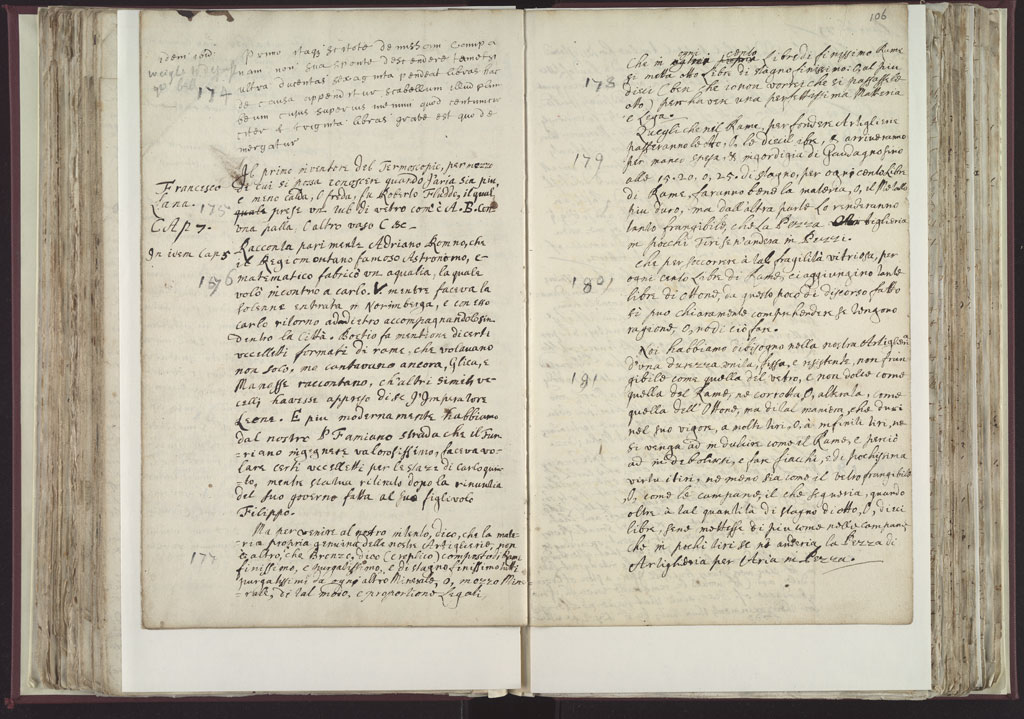 idem ibid.
174
Primo itaq; scitote demissam Campa
nam non sua sponte descendere tametsi
ultra ducentas sexaginta pendeat libras hac
de causa appenditur scabellum illud plum
beum cuius superius memini quod centum et
circiter triginta libras grave est quo de
mergatur
Francesco
Lana. 175
CAP 7.
Il primo inventore del Termoscopio, per mezzo
di cui si possa conoscere quando l'aria sia piu,
e meno calda, o freda, fu Roberto Fludde, il qual
quale prese un Tub. di vitro com'è A. B. con
una palla, C altro vaso C &c.
In idem cap 5
176
Racconta pari mente Adriano Romno, che
il Regiomontano famoso Astronomo, e
matematico fabricò un aquila, la quale
volò incontro a carlo. V mentre faceva la
solenne entrata in Norimberga, e con esso
carlo ritorno adndietro accompagnandolo sin
dentro la Città. Boetio fa mentione di certi
uccelletti formati di rame, che volavano
non solo, ma cantavano ancora, Glica, e
Manasse raccontano, ch'altri simili uc-
celli havesse appreso di se l'Imperatore
Leone. E piu moderna mente habbiamo
dal nostro P Famiano strada che il Tur-
riano ingegnere valorosissimo, faceva vo-
lare certi uccelletti per le stanze di Carlo quin-
to, mentre stava ritirato dopo la rinuntia
del suo governo fatta al suo figlivolo
Filippo.
177
Ma per venire al nostro intento, dico, che la mate-
ria propria genuina della nostra Artiglierie, non
è altro, che Bronzo, dico (e replico) composto di Rame
finissimo, e purgatissimo, e di stagno finissimo tutti
purgatissimi da ogno altro Minerale, o, mezzo Mine
rale, di tal modo, e proportione Legati
106
178
Che in ogni cento Libre di finissimo Rame
si metta otto Libre di stagno finissimo, o al piu
dieci (ben che io non vorrei che si passasse le
oto) per haver una perfettissima Matteria
e Lega.
179
Quegli che nel Rame, per fondere Artiglierie
passeranno le otto, o, le dieci libre, & arriveranno
per manco spesa, & ingordigia di Guadagno sino
alle 15. 20, o, 25. di stagno, per ogni cento Libre
di Rame, faranno bene la materia, o, il Metallo
piu duro, ma dall'altra parte lo renderanno
tanto frangibile, che La Pezza Artiglieria
in pochi Tiri se n'andera in Pezzi.
180
che per soccorrere à tal fragilità vitriosa, per
ogni cento Libre di Rame, ci aggiungino tante
libre di ottone, da questo poco di discorso fatto
si può chiaramente comprhendere se tengono
ragione, o, nò di ciò fare.
181
Noi habbiamo di bisogno nella nostra Artiglieria
d'una durezza unita, sissa, e resistente, non fran
gibile come quella del vetro, e non dolce come
quella del Rame, ne corrotta, o, altrata, come
quella dell'Ottone, ma di tal maniera, che duri
nel suo vigore, a molti tiri, o, à infiniti tiri, ne
si venga ad indulcire come il Rame, e perciò
ad indebolirsi, e fare fiacchi, e di pochissima
virtu i tiri, ne meno sia come il vetro frangibile
o, come le campane, il che sigueria, quando
oltre à tal quantità di stagno di otto, o, dieci
libre, se ne mettesse di piu come nelle campane
che in pochi tiri se ne anderia, la Pezza di
Artigheria per l'Aria in Pezza.